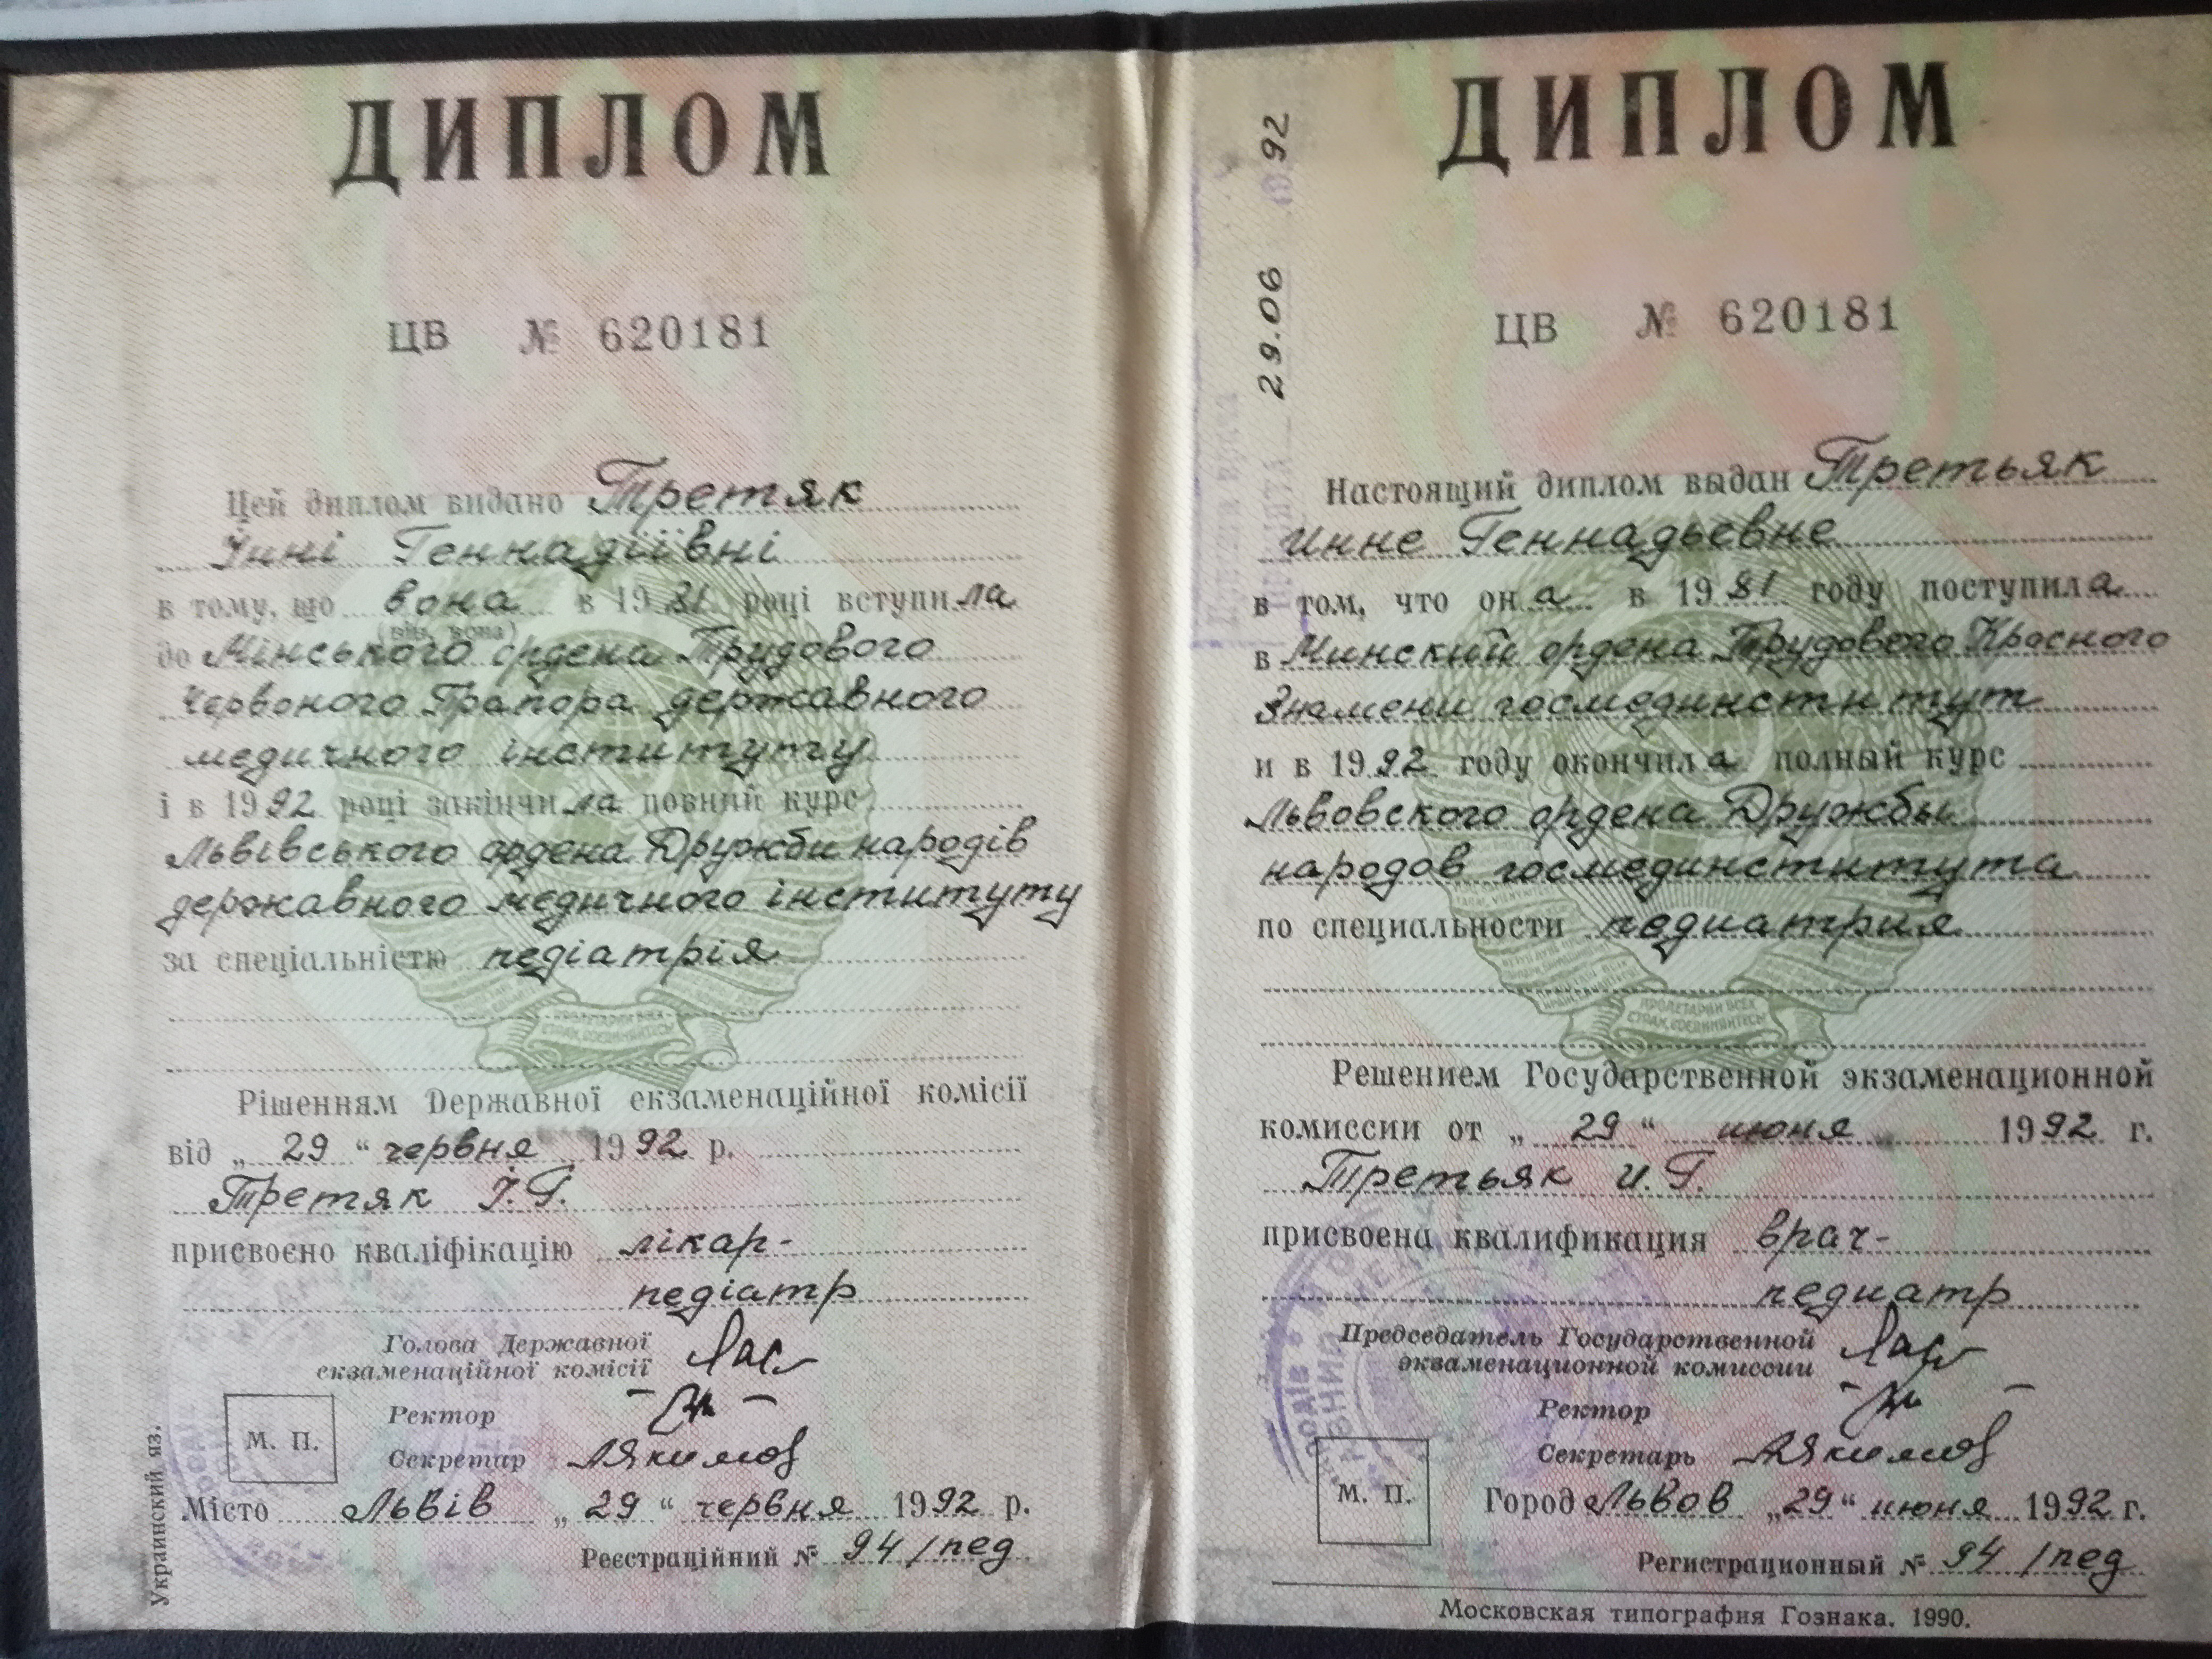 ДИПЛОМ
ЦВ № 620181
Цей диплом видано Третяк
Інні Геннадіївні
в тому, що вона в 1981 році вступила
(він, вона)
до Мінського ордена Трудового
Червоного Прапора державного
медичного інституту
і в 1992 році закінчила повний курс
Львівського ордена Дружби народів
державного медичного інституту
за спеціальністю педіатрія
ПРОЛЕТАРИИ ВСЕХ
СТРАН, СОЕДИНЯЙТЕСЬ!
Рішенням Державної екзаменаційної комісії
від „29“ червня 1992 р.
Третяк І.Г.
присвоєно кваліфікацію лікар-
педіатр
Голова Державної
екзаменаційної комісії
Ректор
М. П.
Секретар
Місто Львів „29“ червня 1992 р.
Реєстраційний № 94/пед
Украинский яз.
ДИПЛОМ
29.06 1992
ЦВ № 620181
Настоящий диплом выдан Третьяк
Инне Геннадьевне
в том, что она в 1981 году поступила
в Минский ордена Трудового Красного
Знамени госмединститут
и в 1992 году окончила полный курс
Львовского ордена Дружбы
народов госмединститута
по специальности педиатрия
ПРОЛЕТАРИИ ВСЕХ
СТРАН, СОЕДИНЯЙТЕСЬ!
Решением Государственной экзаменационной
комиссии от „29“ июня 1992 г.
Третьяк И.Г.
присвоена квалификация врач-
педиатр
Председатель Государственной
экзаменационной комиссии
Ректор
Секретарь
М. П.
Город Львов „29“ июня 1992 г.
Регистрационный № 94/пед
Московская типография Гознака. 1990.